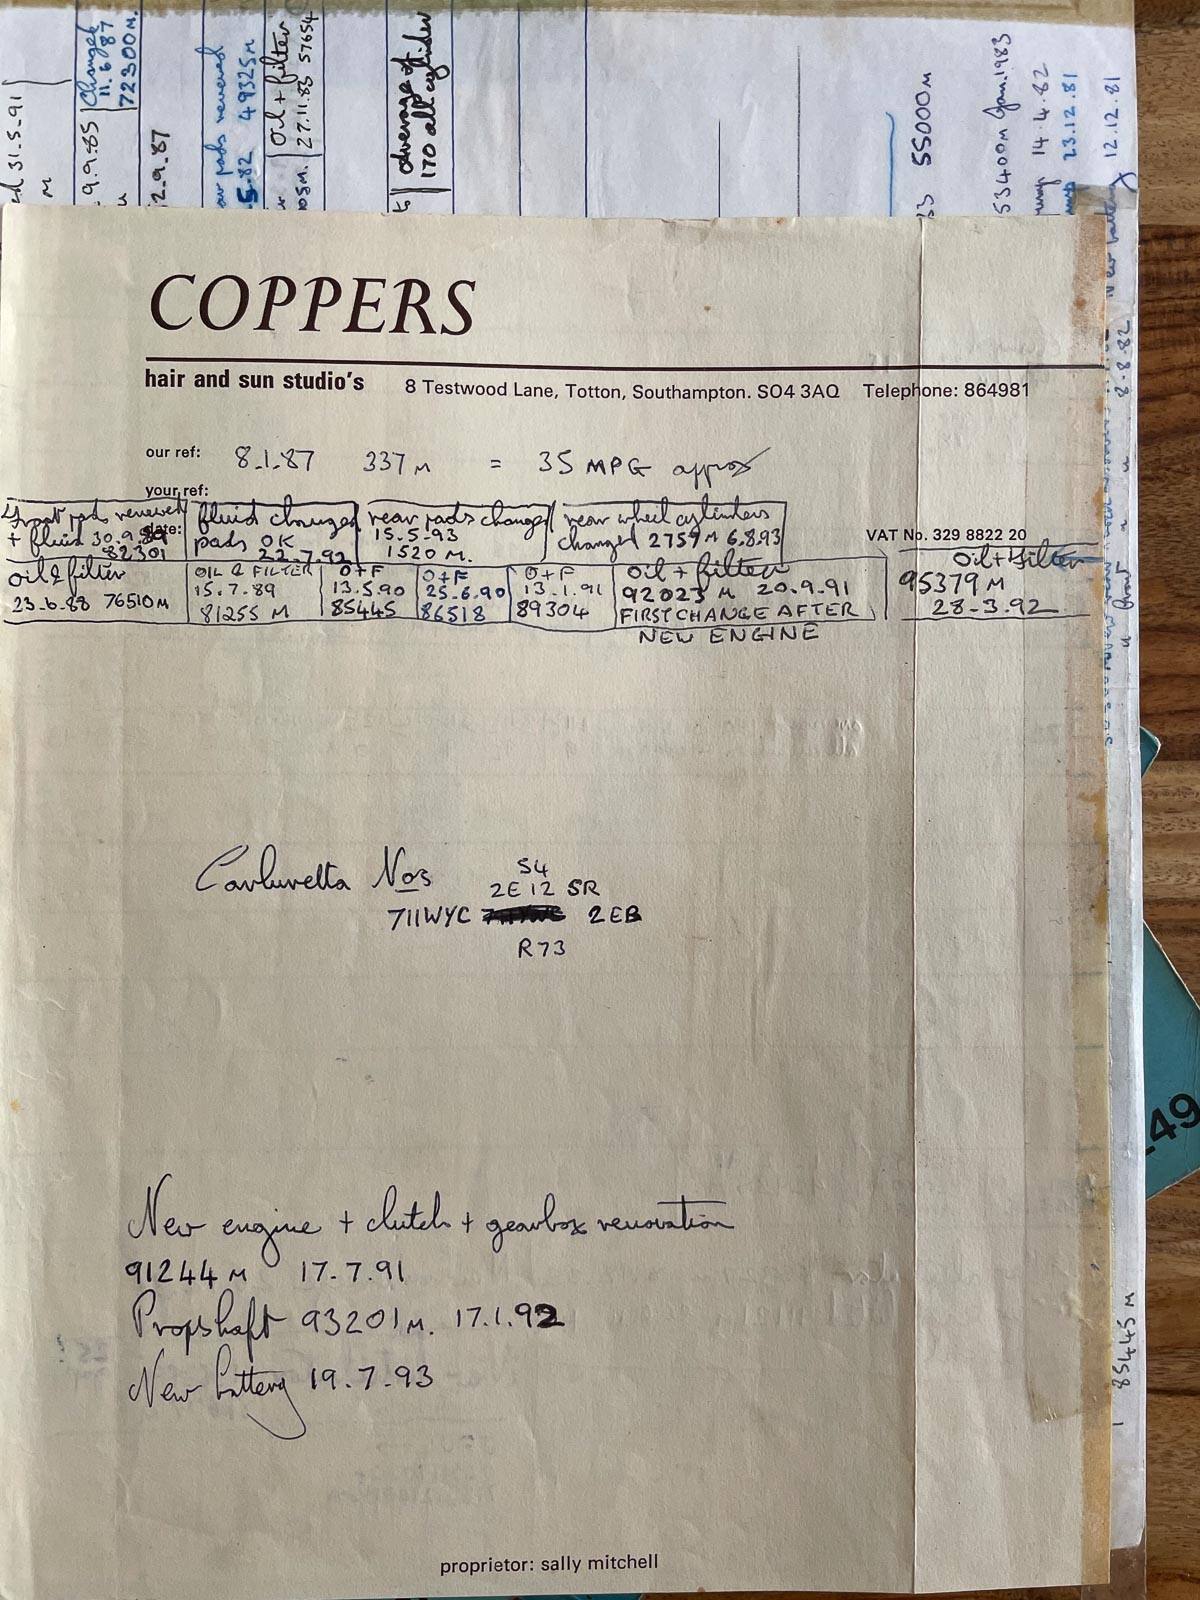 31.5.91
M
9.9.85
Changed
11.6.87
72300 M.
2.9.87
pads renewed
5.82 49325 M
Oil + filter
27.11.83 57654
average of
170 all cylinder
33 55000 M
53400 M Jan. 1983
14.4.82
23.12.81
New battery 12.12.81
8.8.82
COPPERS
hair and sun studio's 8 Testwood Lane, Totton, Southampton. SO4 3AQ Telephone: 864981
our ref: 8.1.87 337 M = 35 MPG approx
your ref:
date:
VAT No. 329 8822 20
Front pads renewed
+ fluid 30.9.89
82301
fluid changed
pads OK
22.7.92
rear pads changed
15.5.93
1520 M.
rear wheel cylinders
changed 2759 M 6.8.93
oil & filter
23.6.88 76510 M
OIL & FILTER
15.7.89
81255 M
O + F
13.5.90
85445
O + F
25.6.90
86518
O + F
13.1.91
89304
Oil + filter
92023 M 20.9.91
FIRST CHANGE AFTER
NEW ENGINE
Oil + Filter
95379 M
28-3.92
Carburetta Nos
S4
2E12 SR
711WYC 2EB
R73
New engine + clutch + gearbox renovation
91244 M 17.7.91
Propshaft 93201 M. 17.1.92
New battery 19.7.93
85445 M
49
proprietor: sally mitchell